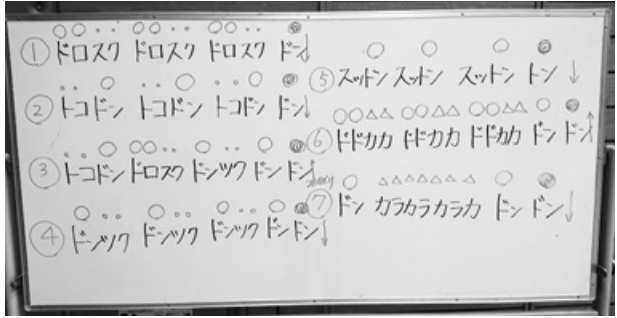 ① ドロスク ドロスク ドロスク ドン↓
② トコドン トコドン トコドン ドン↓
③ トコドン ドロスク ドンツク ドン ドン
④ ドンツク ドンツク ドンツク ドン ドン↓
⑤ スットン スットン スットン トン ↓
⑥ ドドカカ ドドカカ ドドカカ ドン ドン↑
⑦ ドン カラカラカラカ ドン ドン↓